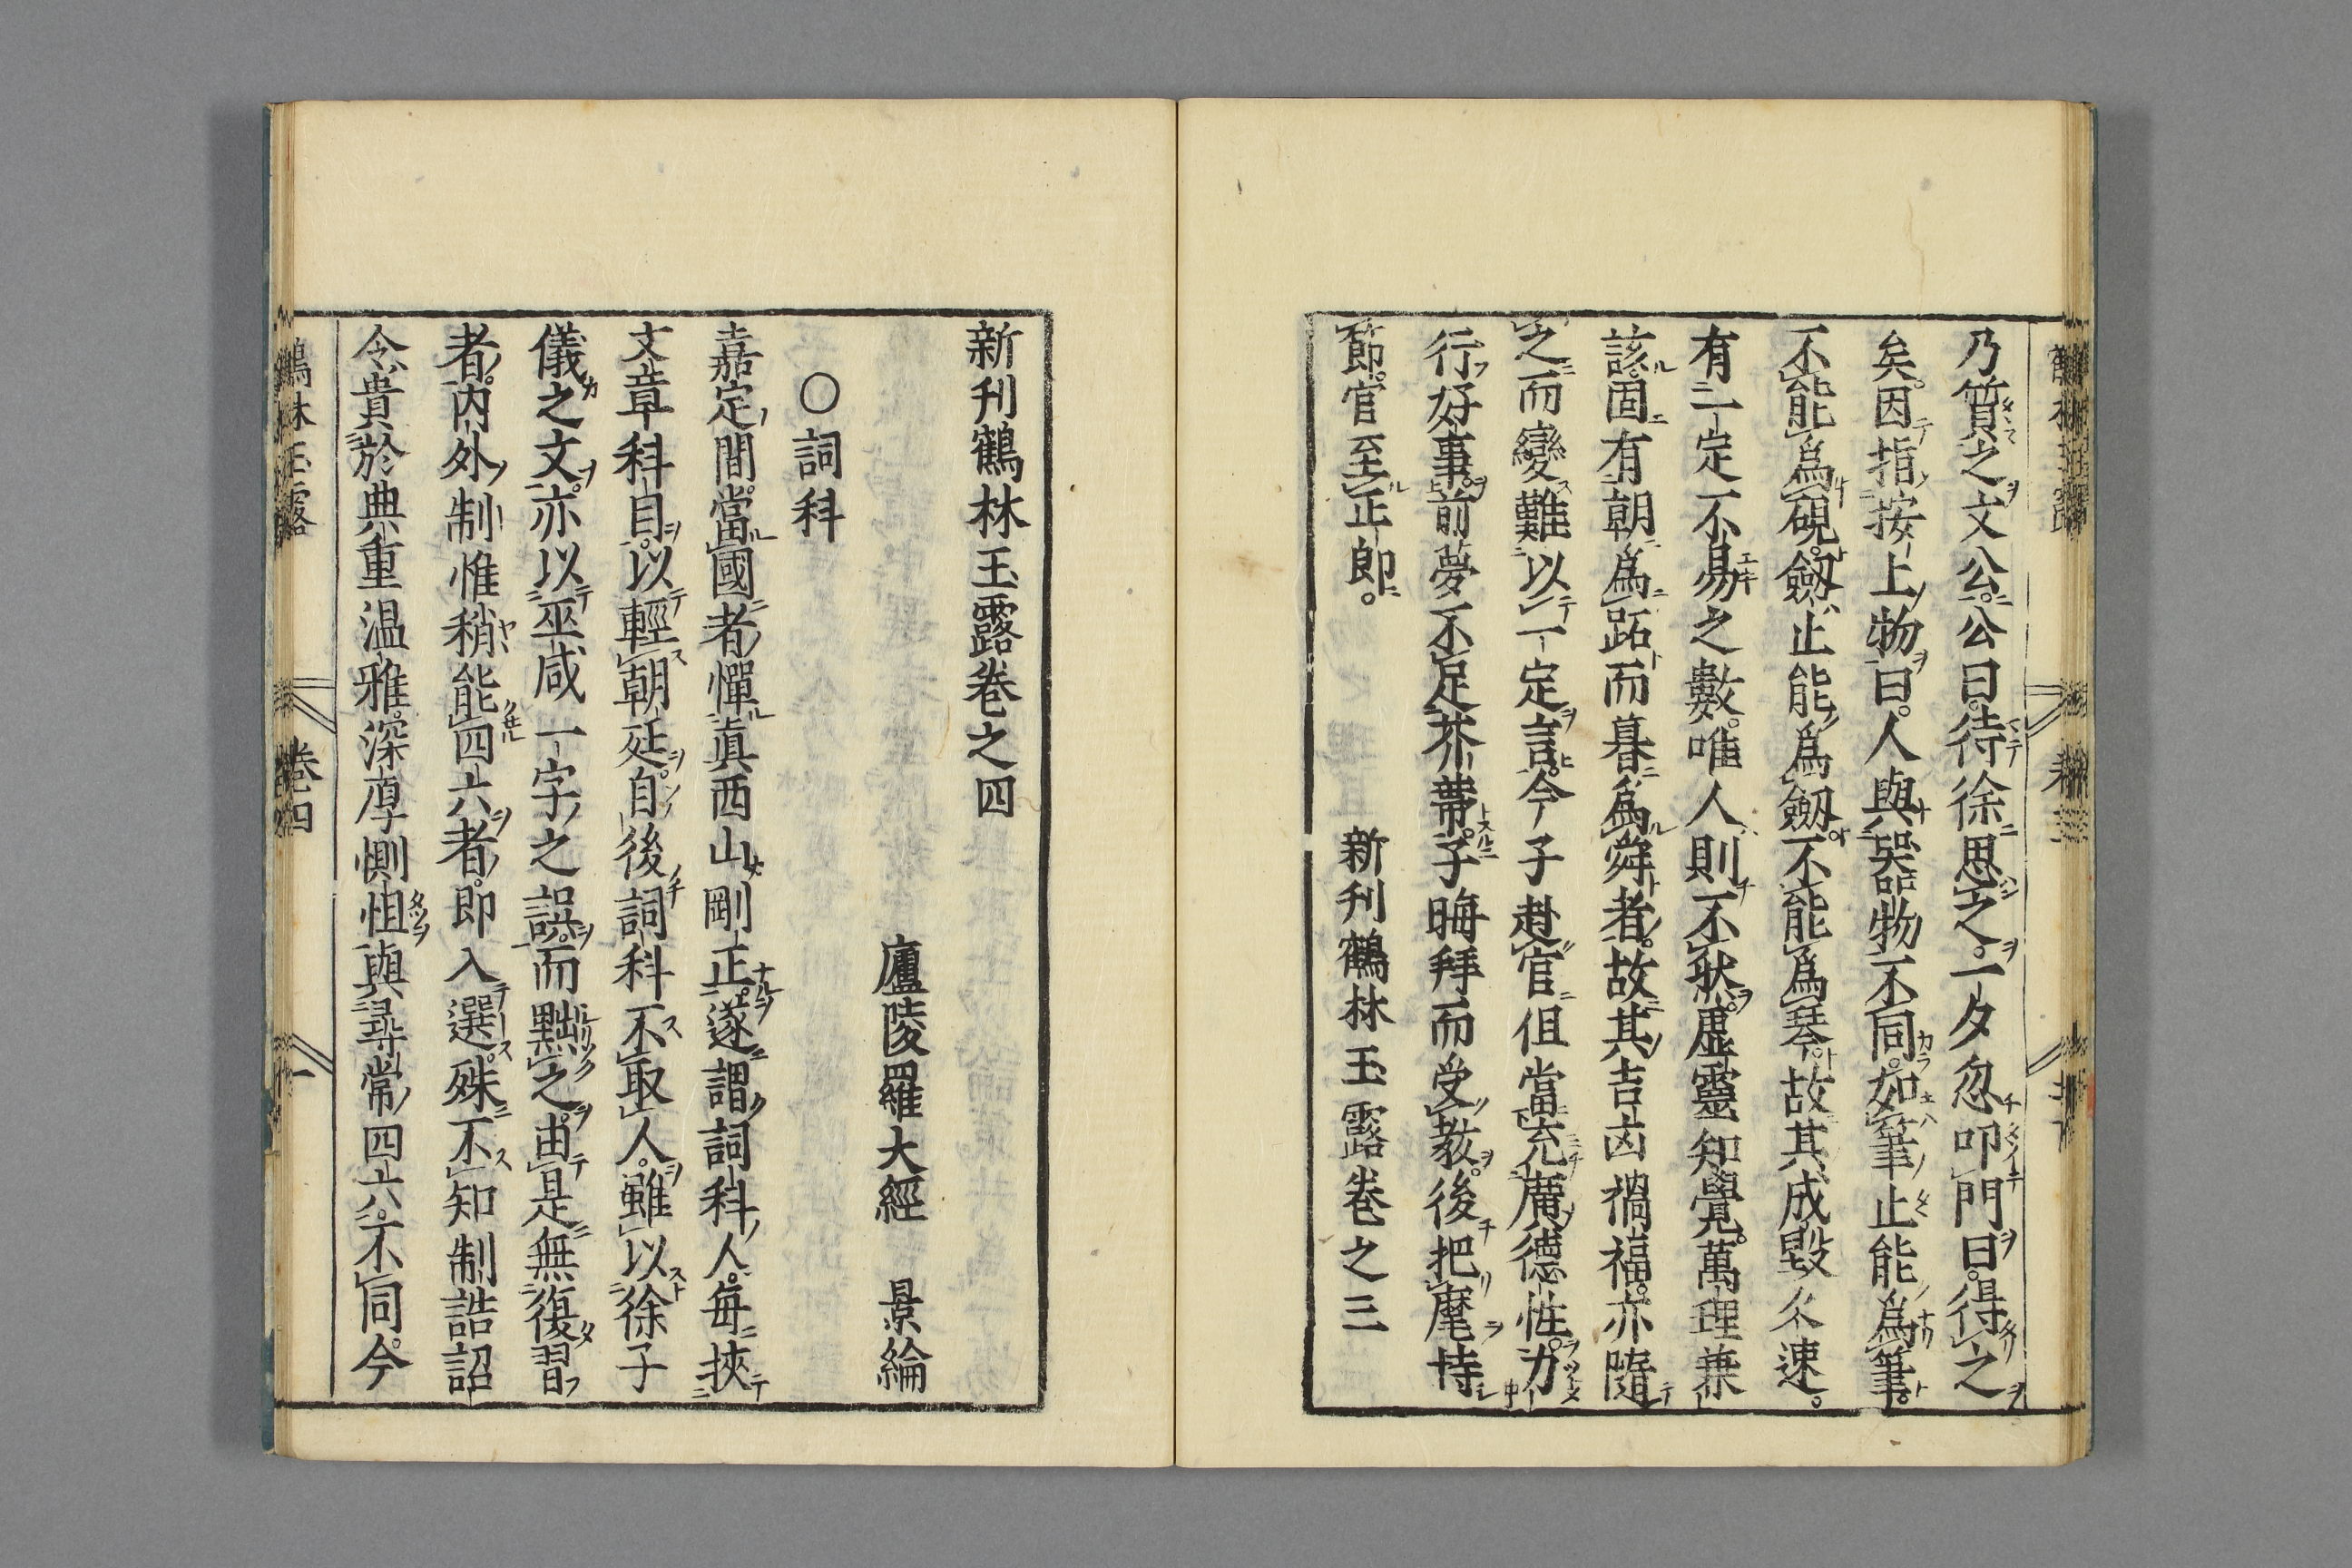 乃質之文公。公曰。待徐思之。一夕忽叩門曰。得之
矣。因指按上物曰。人與器物不同。如筆止能爲筆。
不能爲硯。劔止能爲劔。不能爲琴。故其成毀久速。
有一定不易之數。唯人則不狀。虛靈知覺。萬理兼
該。固有朝爲跖而暮爲舜者。故其吉凶禍福。亦隨
之而變。難以一定言。今子赴官。但當充廣德性。力
行好事。前夢不足芥蔕。子晦拜而受教。後把麾持
節。官至正郎。
新刊鶴林玉露卷之三
新刊鶴林玉露卷之四
廬陵羅大經 景綸
○詞科
嘉定間。當國者憚眞西山剛正。遂謂詞科人。每挾
文章科目。以輕朝廷。自後詞科不取人。雖以徐子
儀之文。亦以巫咸一字之誤。而黜之。由是無復習
者。內外制惟稍能四六者。即入選。殊不知制誥詔
令。貴於典重温雅。深厚惻怛。與尋常四六。不同。今
鶴林玉露 卷四 一